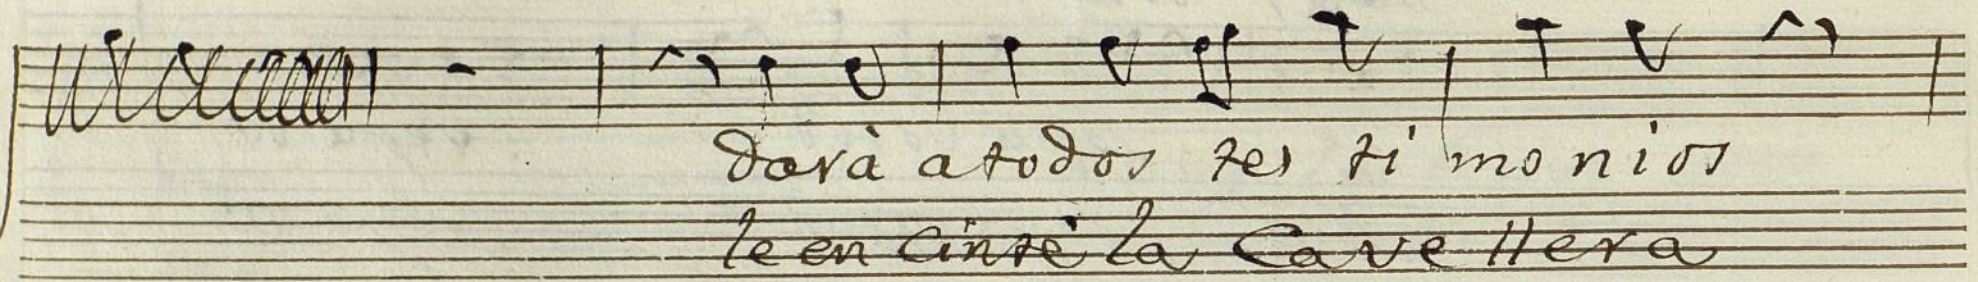 darà a todos tes ti mo nios
le en Cintè la Cave llera